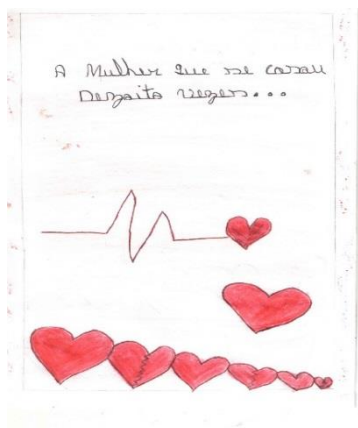 A Mulher Que se casou
Dezoito vezes...